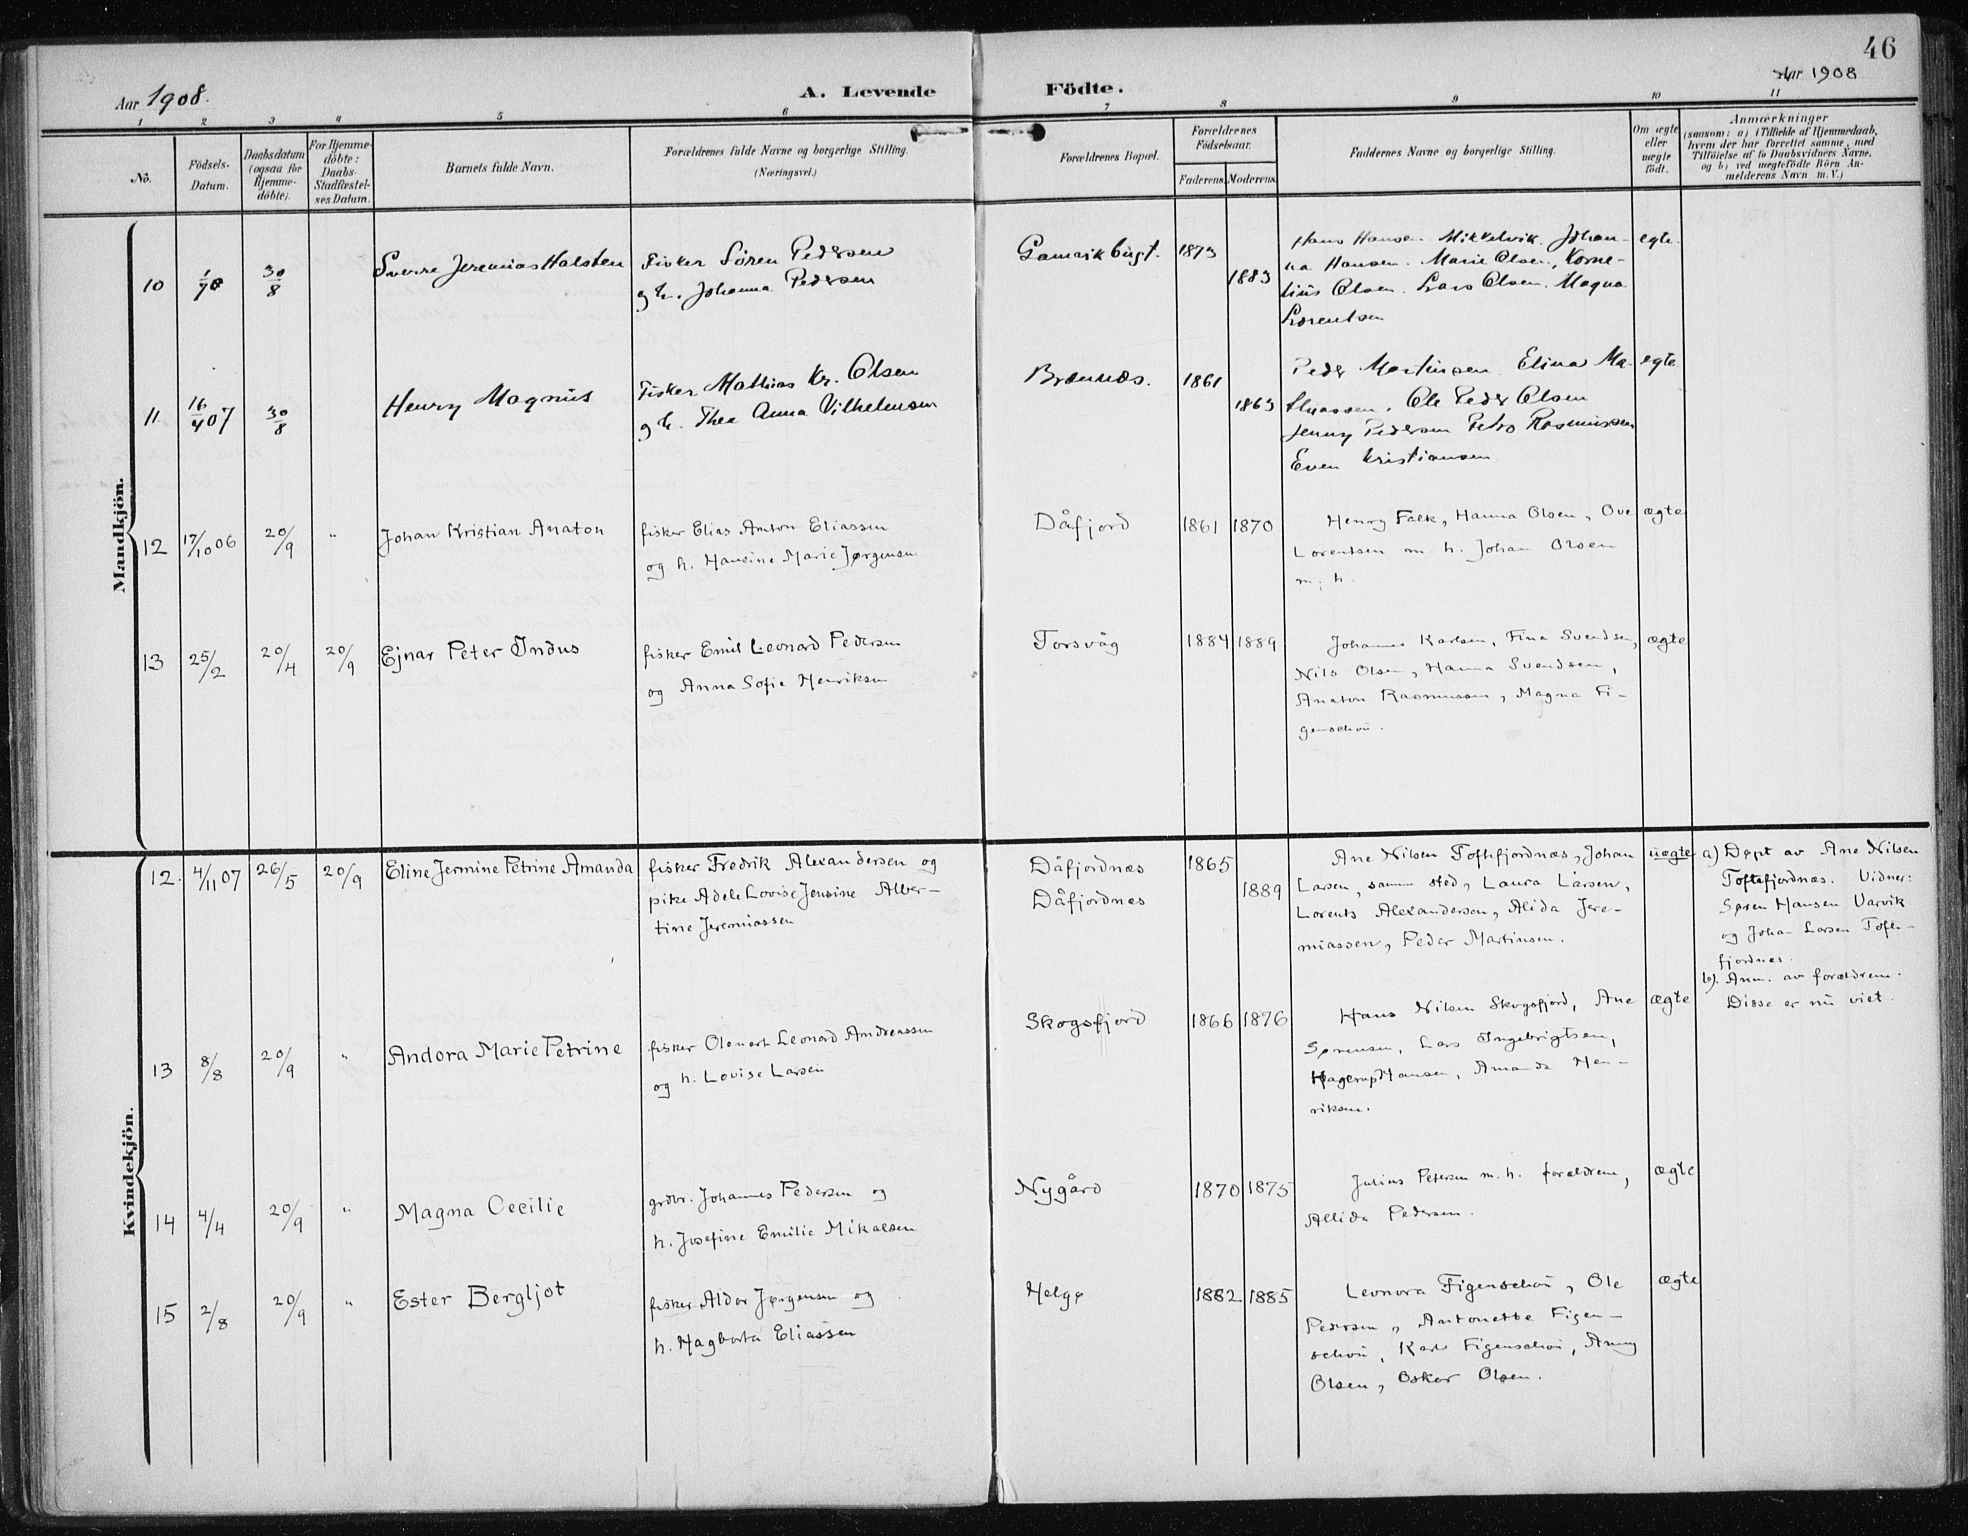 46
Aar 1908.
A. Levende
Födte.
Aar 1908
1 2 3 4 5 6 7 8 9 10 11
No.
Födsels-
Datum.
Daabsdatum
(ogsaa for
Hjemme-
döbte).
For Hjemme-
döbte:
Daabs-
Stadfæstel-
ses Datum.
Barnets fulde Navn.
Forældrenes fulde Navne og borgerlige Stilling.
(Næringsvei.)
Forældrenes Bopæl.
Forældrenes
Födselsaar.
Faderens. Moderens.
Faddernes Navne og borgerlige Stilling.
Om ægte
eller
uægte
födt.
Anmærkninger
(saasom: a) i Tilfælde af Hjemmedaab,
hvem der har forrettet samme, med
Tilföielse af to Daabsvidners Navne,
og b) ved uægtefödte Börn An-
melderens Navn m. V.)
Mandkjön.
10 1/7 8 30/8 Sverre Jeremias Halsten
Fisker Sören Pedersen
og h. Johanna Pedersen
Gamvikbugt. 1873 1883
Hans Hansen Mikkelvik. Johan-
na Hansen. Marie Olsen, Korne-
lius Olsen. Lars Olsen. Magna
Lorentsen
egte.
11 16/4 07 30/8 Henry Magnus
Fisker Mathias Kr. Olsen
og h. Thea Anna Vilhelmsen
Brænnes. 1861 1863
Peder Martinsen Elina Ma-
thiassen. Ole Peder Olsen
Jenny Pedersen Petra Rasmussen
Even Kristiansen
egte
12 17/10 06 20/9 " Johan Kristian Anaton
fisker Elias Anton Eliassen
og h. Hansine Marie Jørgensen
Dåfjord 1861 1870
Henry Falk, Hanna Olsen, Ove
Lorentsen m. h. Johan Olsen
m. h.
ægte
13 25/2 20/4 20/9 Ejnar Peter Indus
fisker Emil Leonard Pedersen
og Anna Sofie Henriksen
Torsvåg 1884 1889
Johannes Karlsen, Fina Svendsen,
Nils Olsen, Hanna Svendsen,
Anaton Rasmussen, Magna Fi-
genschou.
ægte
Kvindekjön.
12. 4/11 07 26/5 20/9 Eline Jermine Petrine Amanda
fisker Fredrik Alexandersen og
pike Adele Lovise Jensine Alber-
tine Jeremiassen
Dåfjordnes
Dåfjordnes
1865 1889
Ane Nilsen Toftefjordnæs, Johan
Larsen, samme sted, Laura Larsen,
Lorents Alexandersen, Alida Jere-
miassen, Peder Martinsen.
uægte
a) Døpt av Ane Nilsen
Toftefjordnæs. Vidner:
Søren Hansen Varvik
og Johan Larsen Tofte-
fjordnæs.
b). Anm. av forældrene.
Disse er nu viet.
13 8/8 20/9 " Andora Marie Petrine
fisker Olenert Leonard Andreassen
og h. Lovise Larsen
Skogsfjord 1866 1876
Hans Nilsen Skogsfjord, Ane
Sørensen, Lars Ingebrigtsen,
Hagerup Hansen, Amanda Hen-
riksen.
ægte
14 4/4 20/9 " Magna Cecilie
grdbr. Johannes Pedersen og
h. Josefine Emilie Mikalsen
Nygård 1870 1875
Julius Petersen m. h. forældrene,
Allida Pedersen.
ægte
15 2/8 20/9 " Ester Bergljot
fisker Aldor Jørgensen og
h. Hagbarta Eliassen
Helgø 1882 1885
Leonora Figenschou, Ole
Pedersen, Antonette Figen-
schou, Karl Figenschou, Anny
Olsen, Oskar Olsen.
ægte